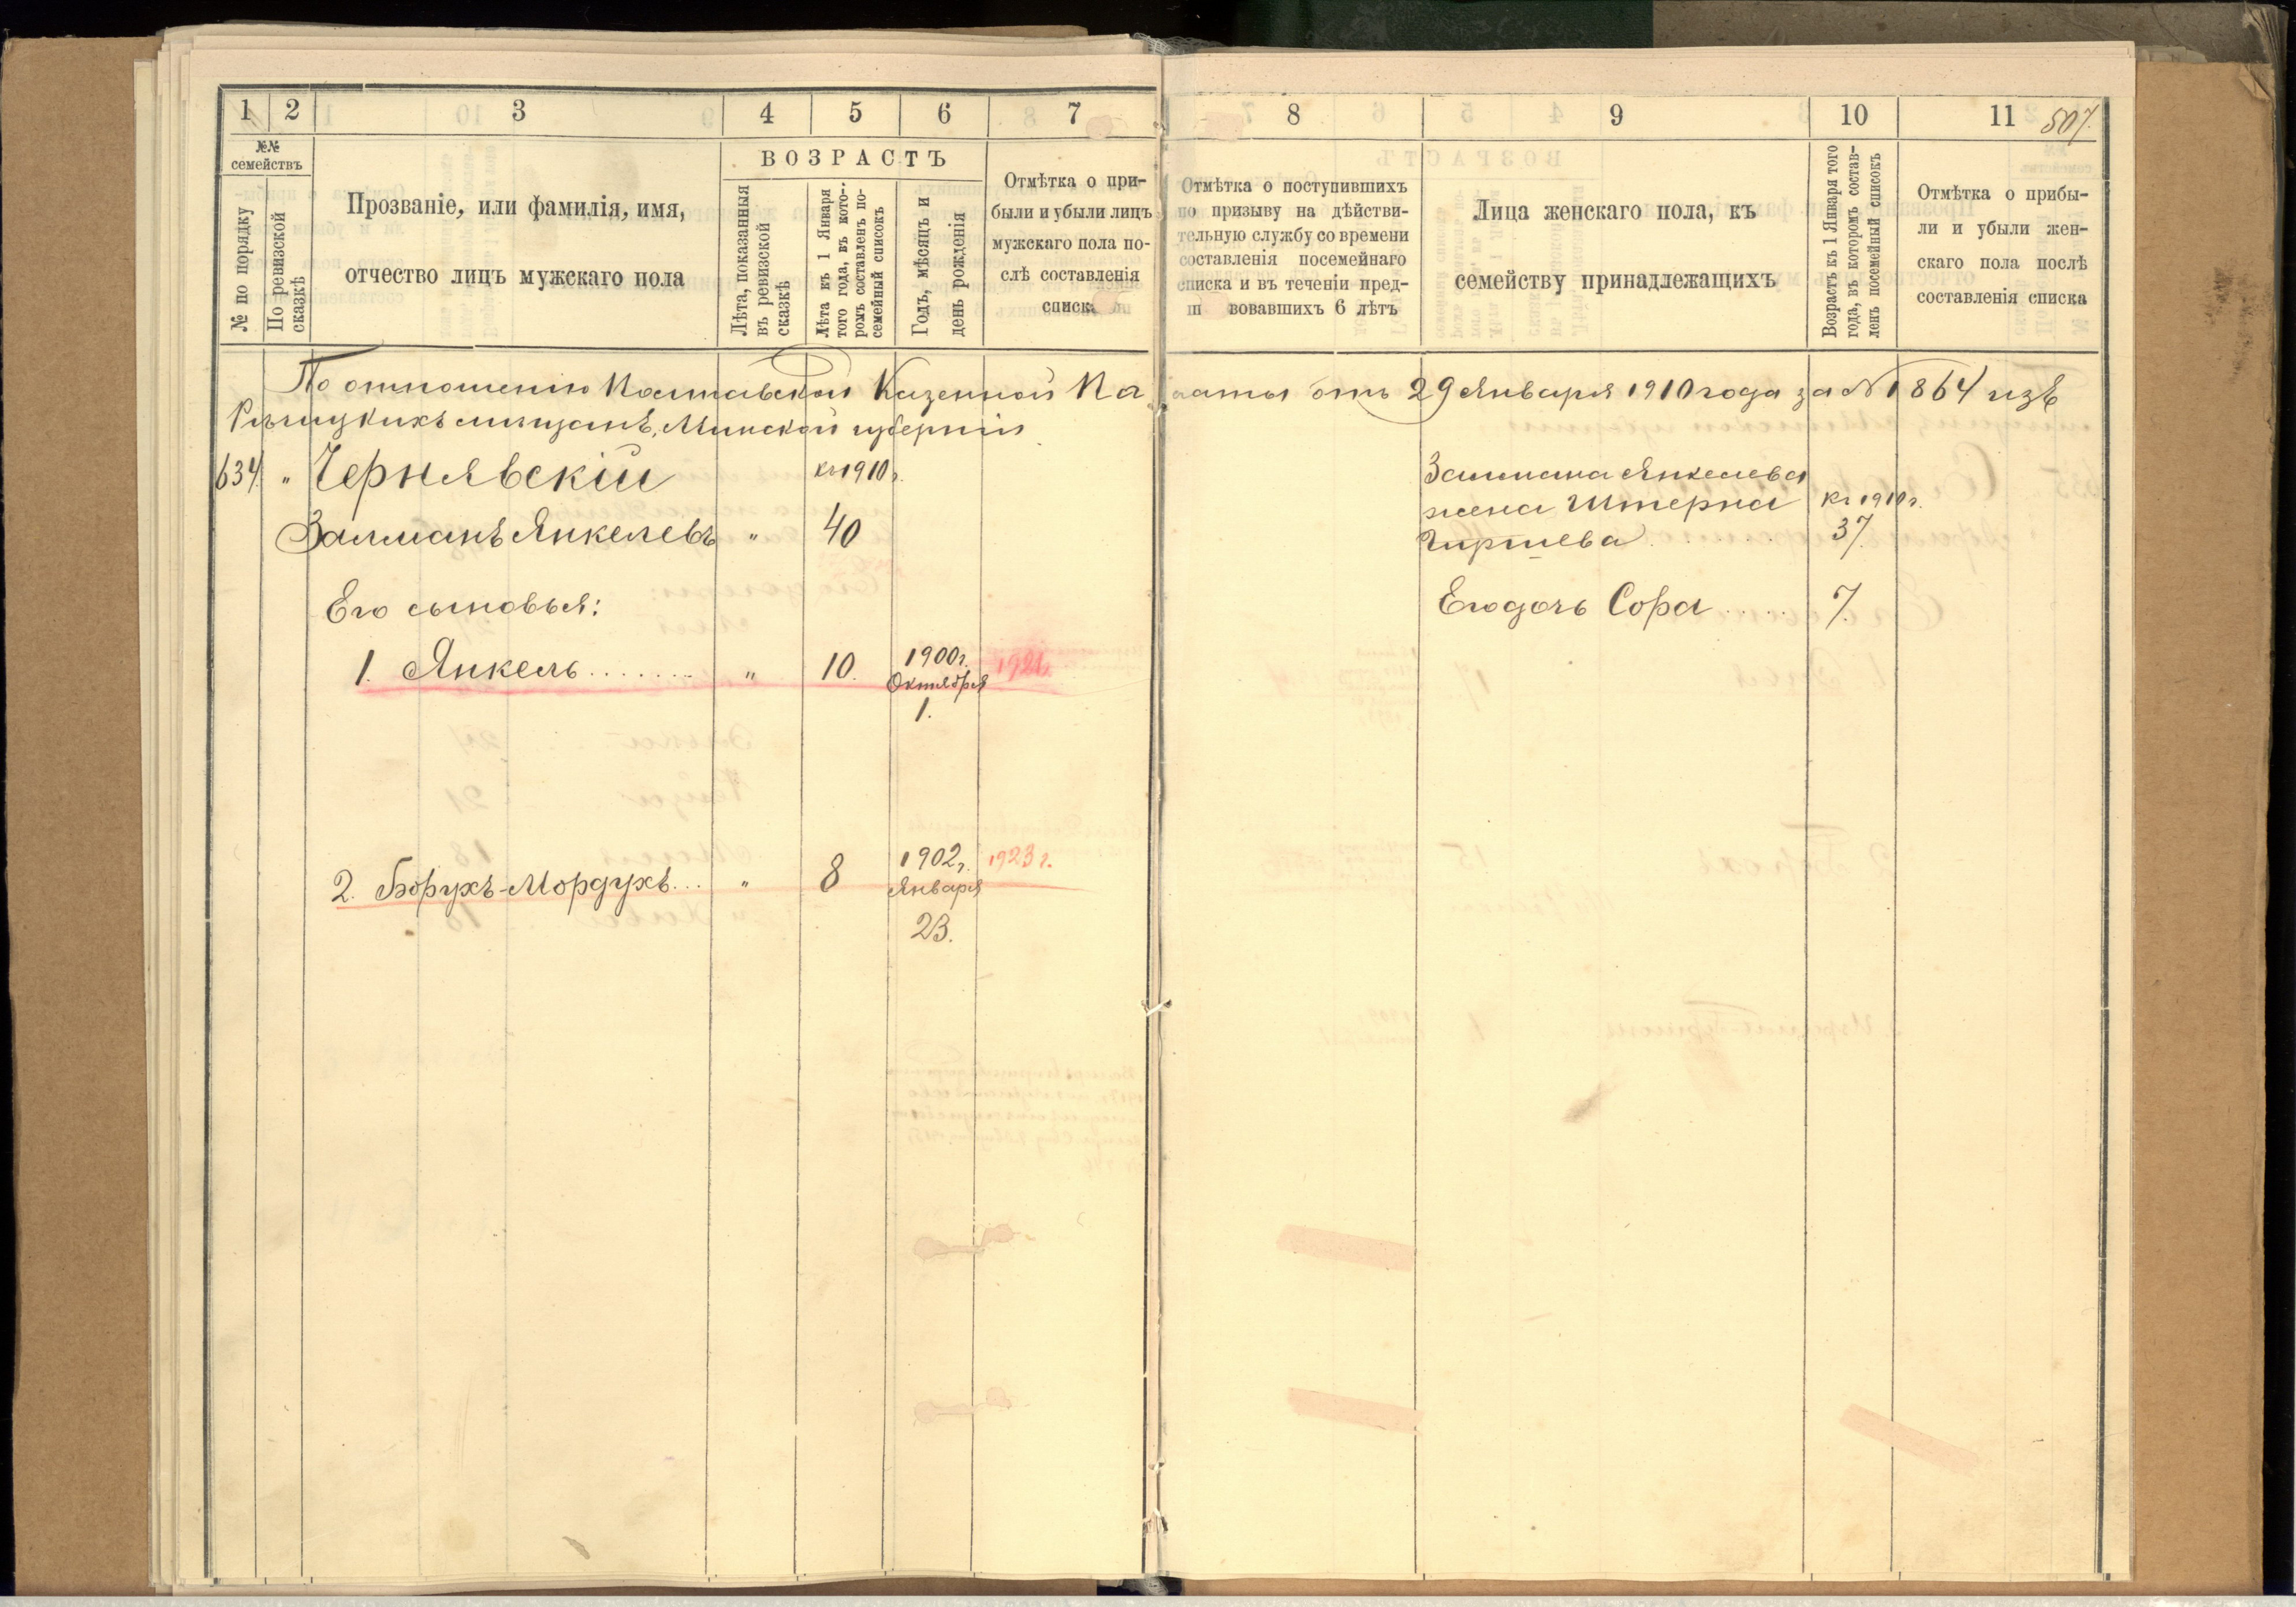 1 2 3 4 5 6 7
№№ семействъ
№ по порядку
По ревизской сказкѣ
Прозваніе, или фамилія, имя,
отчество лицъ мужскаго пола
ВОЗРАСТЪ
Лѣта, показанныя
въ ревизской
сказкѣ
Лѣта къ 1 Января
того года, въ кото-
ромъ составленъ по-
семейный списокъ
Годъ, мѣсяцъ и
день рожденія
Отмѣтка о при-
были и убыли лицъ
мужскаго пола по-
слѣ составленія
списка
8 9 10 11 507.
Отмѣтка о поступившихъ
по призыву на дѣйстви-
тельную службу со времени
составленія посемейнаго
списка и въ теченіи пред-
вовавшихъ 6 лѣтъ
Лица женскаго пола, къ
семейству принадлежащихъ
Возрастъ къ 1 Января того
года, въ которомъ состав-
ленъ посемейный списокъ
Отмѣтка о прибы-
ли и убыли жен-
скаго пола послѣ
составленія списка
По отношенію Полтавской Казенной Палаты отъ 29 Января 1910 года за № 1864 изъ
Рѣчицкихъ мѣщанъ, Минской губерніи
634. " Чернявскій къ 1910 г.
Залманъ Янкелевъ " 40
Его сыновья:
1. Янкель........ " 10. 1900 г. 1921
Октября
1.
2. Борухъ-Мордухъ... " 8 1902 г. 1923 г.
Января
23.
Залмана Янкелева
жена Штерна къ 1910 г.
Гиршева 37.
Его дочь Сора ..... 7.